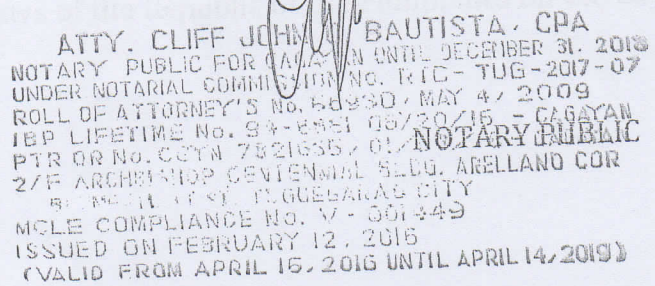 ATTY. CLIFF JOHN BAUTISTA, CPA
NOTARY PUBLIC FOR CAGAYAN UNTIL DECEMBER 31. 2018
UNDER NOTARIAL COMMISSION No. RTC- TUG-2017-07
ROLL OF ATTORNEY'S No. 56930, MAY 4, 2009
IBP LIFETIME No. 05/20/16 - CAGAYAN
PTR OR No. CGYN 01/
NOTARY PUBLIC
2/F ARCHBISHOP CENTENNIAL BLDG. ARELLANO COR
TUGUEGARAO CITY
MCLE COMPLIANCE No. V - 001449
ISSUED ON FEBRUARY 12, 2016
(VALID FROM APRIL 15, 2016 UNTIL APRIL 14, 2019)